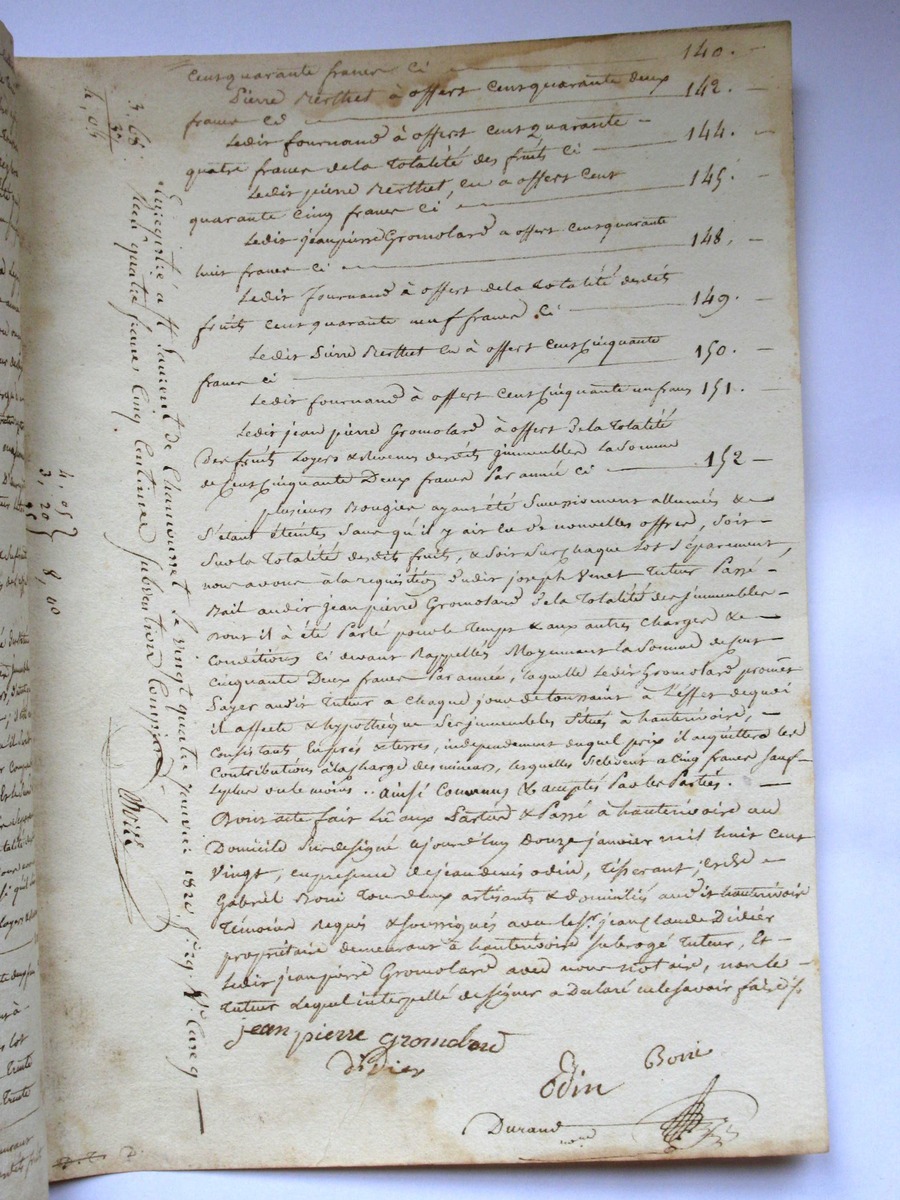 cent quarante francs ci — 140. —
Pierre Berthet à offert cent quarante deux
francs ci — 142. —
Ledit fournand à offert cent quarante —
quatre francs de la Totalité des fruits ci — 144. —
Ledit pierre Berthet, en a offert cent
quarante cinq francs ci — 145. —
Ledit jean pierre Gromolard a offert cent quarante
huit francs ci — 148. —
Ledit fournand à offert de la totalité desdits
fruits cent quarante neuf francs ci — 149. —
Ledit Pierre Berthet en à offert cent cinquante
francs ci — 150. —
Ledit fournand à offert cent cinquante un francs 151. —
Ledit jean pierre Gromolard à offert de la Totalité
Des fruits Loyers & Revenus desdits jmmeubles la Somme
de Cent Cinquante Deux francs Par année ci — 152 —
plusieurs Bougies ayant été Successivement allumées & —
S'étant éteintes Sans qu'il y ait eu de nouvelles offres, Soit —
Sur la Totalité desdits fruits, & Soit Sur chaque Lot Séparement,
nous avons à la requisition dudit joseph Vinet Tuteur Passé —
Bail audit jean pierre Gromolard de la Totalité des jmmeubles —
Dont il à été Parlé pour le Temps & aux autres charges & —
Conditions Ci devant Rappellés Moyennant la Somme de Cent
cinquante Deux francs Par année, laquelle Ledit Gromolard promet
Payer audit Tuteur a Chaque jour de toussaint à L'effet de quoi
il affecte & hypothèque Ses jmmeubles Situés à hauterivoire, —
Consistants En prés & terres, independement duquel prix il acquittera les
Contributions à la charge des mineurs, lesquelles S'elèvent a Cinq francs Sauf —
le plus ou le moins . . ainsi Convenus & acceptés Par les Parties. —
Dont acte fait Lu aux Parties & Passé à hauterivoire au
Domicile Sus designé aujourd'huy Douze janvier mil huit cent
Vingt, en presence de jean denis odin, Tisserant, et de —
Gabriel Boire Tous deux artisants & domiciliés audit hauterivoire
Témoins Requis & Soussignés avec le Sr. jean Claude Didier
propriétaire demeurant à hauterivoire Subrogé Tuteur, Et —
Ledit jean pierre Gromolard avec nous notaire, non le —
Tuteur Lequel interpellé de Signer a Déclaré ne le Savoir faire
jean pierre gromolard
didier
Odin
Boire
Durand
Enregistré a St Laurent de Chamousset le vingt quatre janvier 1820.
Reçu quatre francs cinq Centimes Subvention Comprise
3, 68
37
4, 05
4. 05
3. 20
8, 00